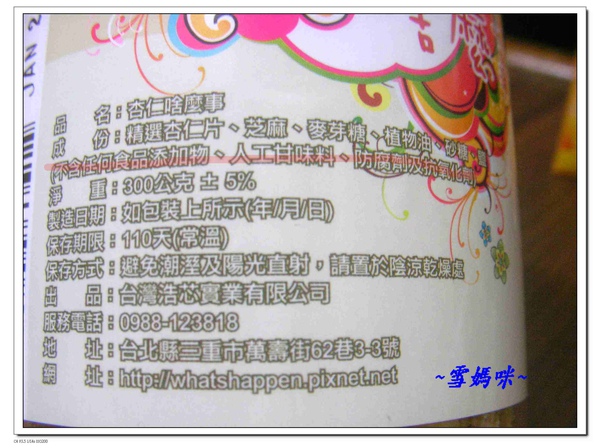 JAN 2
品 名：杏仁啥麼事
成 份：精選杏仁片、芝麻、麥芽糖、植物油、砂糖、鹽
(不含任何食品添加物、人工甘味料、防腐劑及抗氧化劑)
淨 重：300公克 ± 5%
製造日期：如包裝上所示(年/月/日)
保存期限：110天(常溫)
保存方式：避免潮溼及陽光直射，請置於陰涼乾燥處
出 品：台灣浩芯實業有限公司
服務電話：0988-123818
地 址：台北縣三重市萬壽街62巷3-3號
網 址：http://whatshappen.pixnet.net
~雪媽咪~